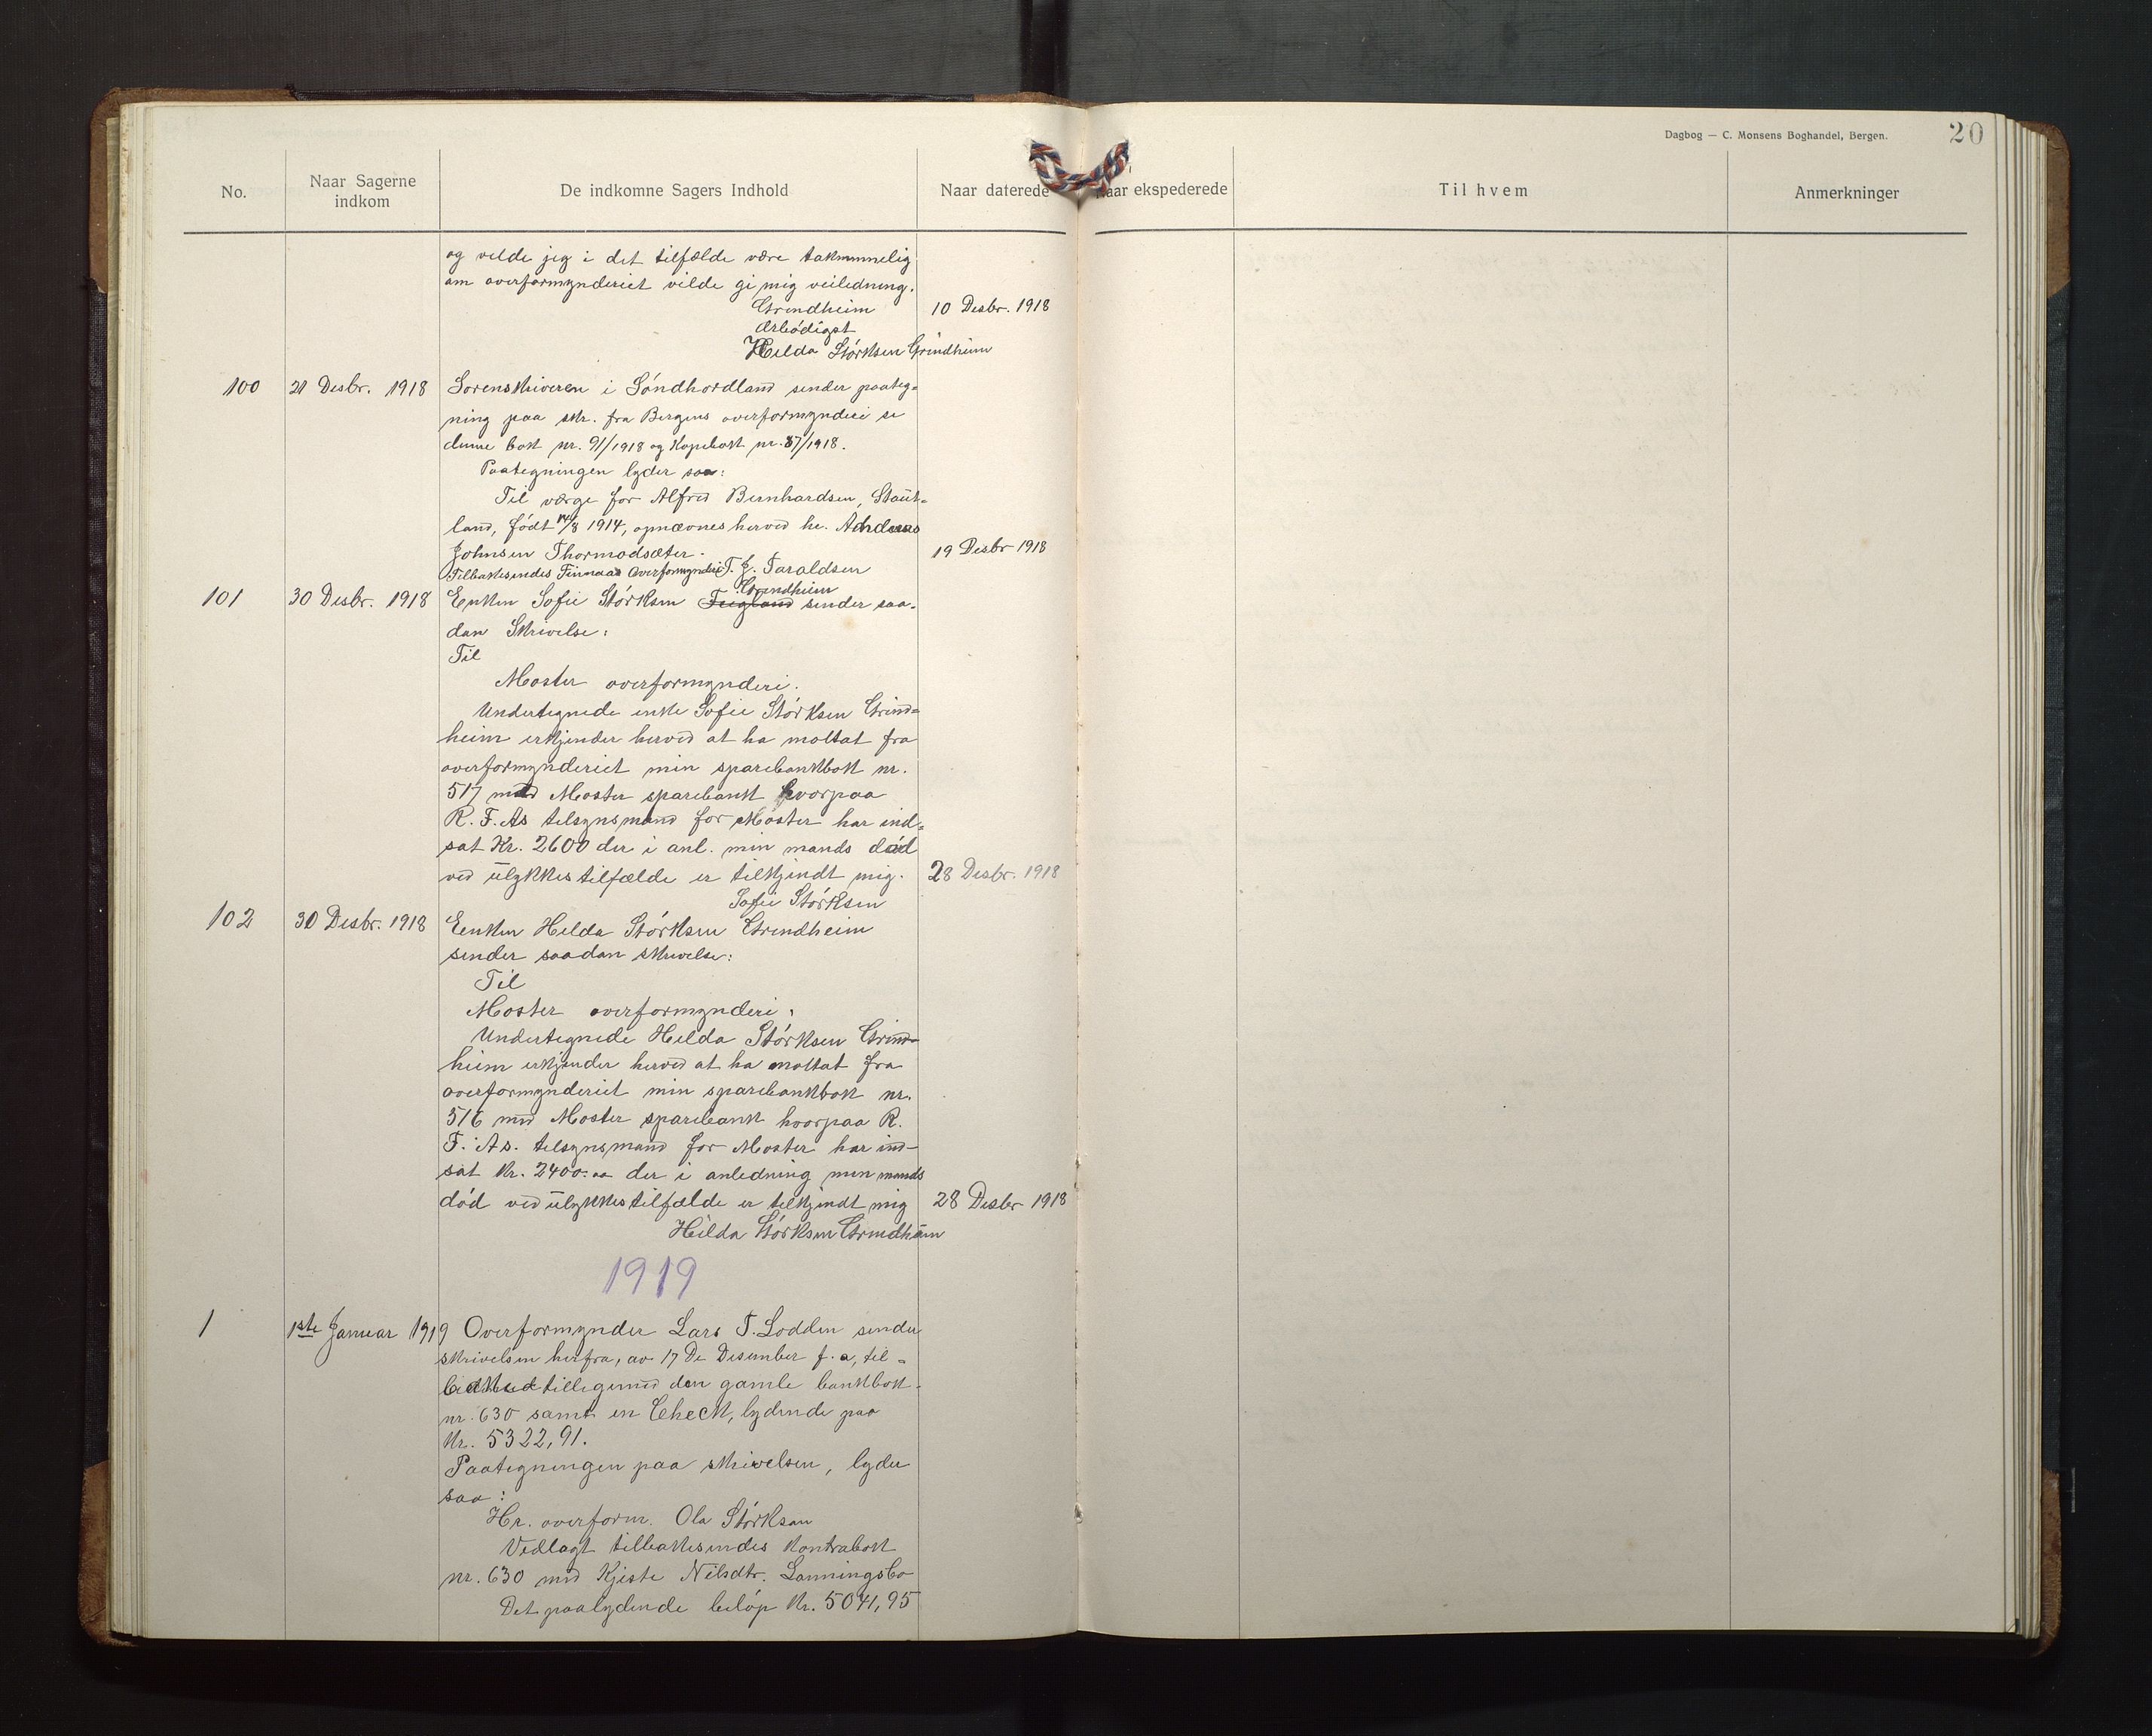 Dagbog — C. Monsens Boghandel, Bergen.
20
No.
Naar Sagerne indkom
De indkomne Sagers Indhold
Naar daterede
Naar ekspederede
Til hvem
Anmerkninger
og velde jeg i det tilfælde være takmmelig
om overformynderiet vilde gi mig veiledning.
Grindheim
10 Desbr. 1918
Ærbødigst
Hilda Størksen Grindheim
100 21 Desbr. 1918 Sorenskriveren i Søndhordland sender paateg=
ning paa skr. fra Bergens overformynderi se
denne bok nr. 91/1918 og Kopibok nr. 87/1918.
Paategningen lyder saa:
Til værge for Alfred Bernhardsen, Staut=
land, født 14/8 1914, opnævnes herved hr. Andreas
Johnsen Thormodsæter.
19 Desbr 1918
Tilbakesendes Finnaas Overformynderi T. J. Taraldsen
Grindheim
101 30 Desbr. 1918 Enken Sofie Størksen Fugland sender saa=
dan Skrivelse:
Til
Moster overformynderi.
Undertegnede enke Sofie Størksen Grind=
heim erkjender herved at ha mottat fra
overformynderiet min sparebankbok nr.
517 med Moster sparebank hvorpaa
R. F. As tilsynsmand for Moster har ind=
sat Kr. 2600 der i anl. min mands død
ved ulykkestilfælde er tilkjendt mig.
28 Desbr. 1918
Sofie Størksen
102 30 Desbr. 1918 Eenken Hilda Størksen Grindheim
sender saadan skrivelse:
Til
Moster overformynderi.
Undertegnede Hilda Størksen Grind=
heim erkjender herved at ha mottat fra
overformynderiet min sparebankbok nr.
516 med Moster sparebank hvorpaa R.
F. As. tilsynsmand for Moster har ind-
sat Kr. 2400.00 der i anledning min mands
død ved ulykkestilfælde er tilkjendt mig
28 Desbr 1918
Hilda Størksen Grindheim
1919
1 1ste Januar 1919 Overformynder Lars T. Lodden sender
skrivelsen herfra, av 17 De Desember f. a, til=
tillegemed den gamle bankbok
nr. 630 samt en Check, lydende paa
Kr. 5322,91.
Paategningen paa skrivelsen, lyder
saa:
Hr. overform. Ola Størksen
Vedlagt tilbakesendes Kontrabok
nr. 630 med Kjiste Nilsdtr. Lønningsbo
Det paalydende beløp Kr. 5041,95